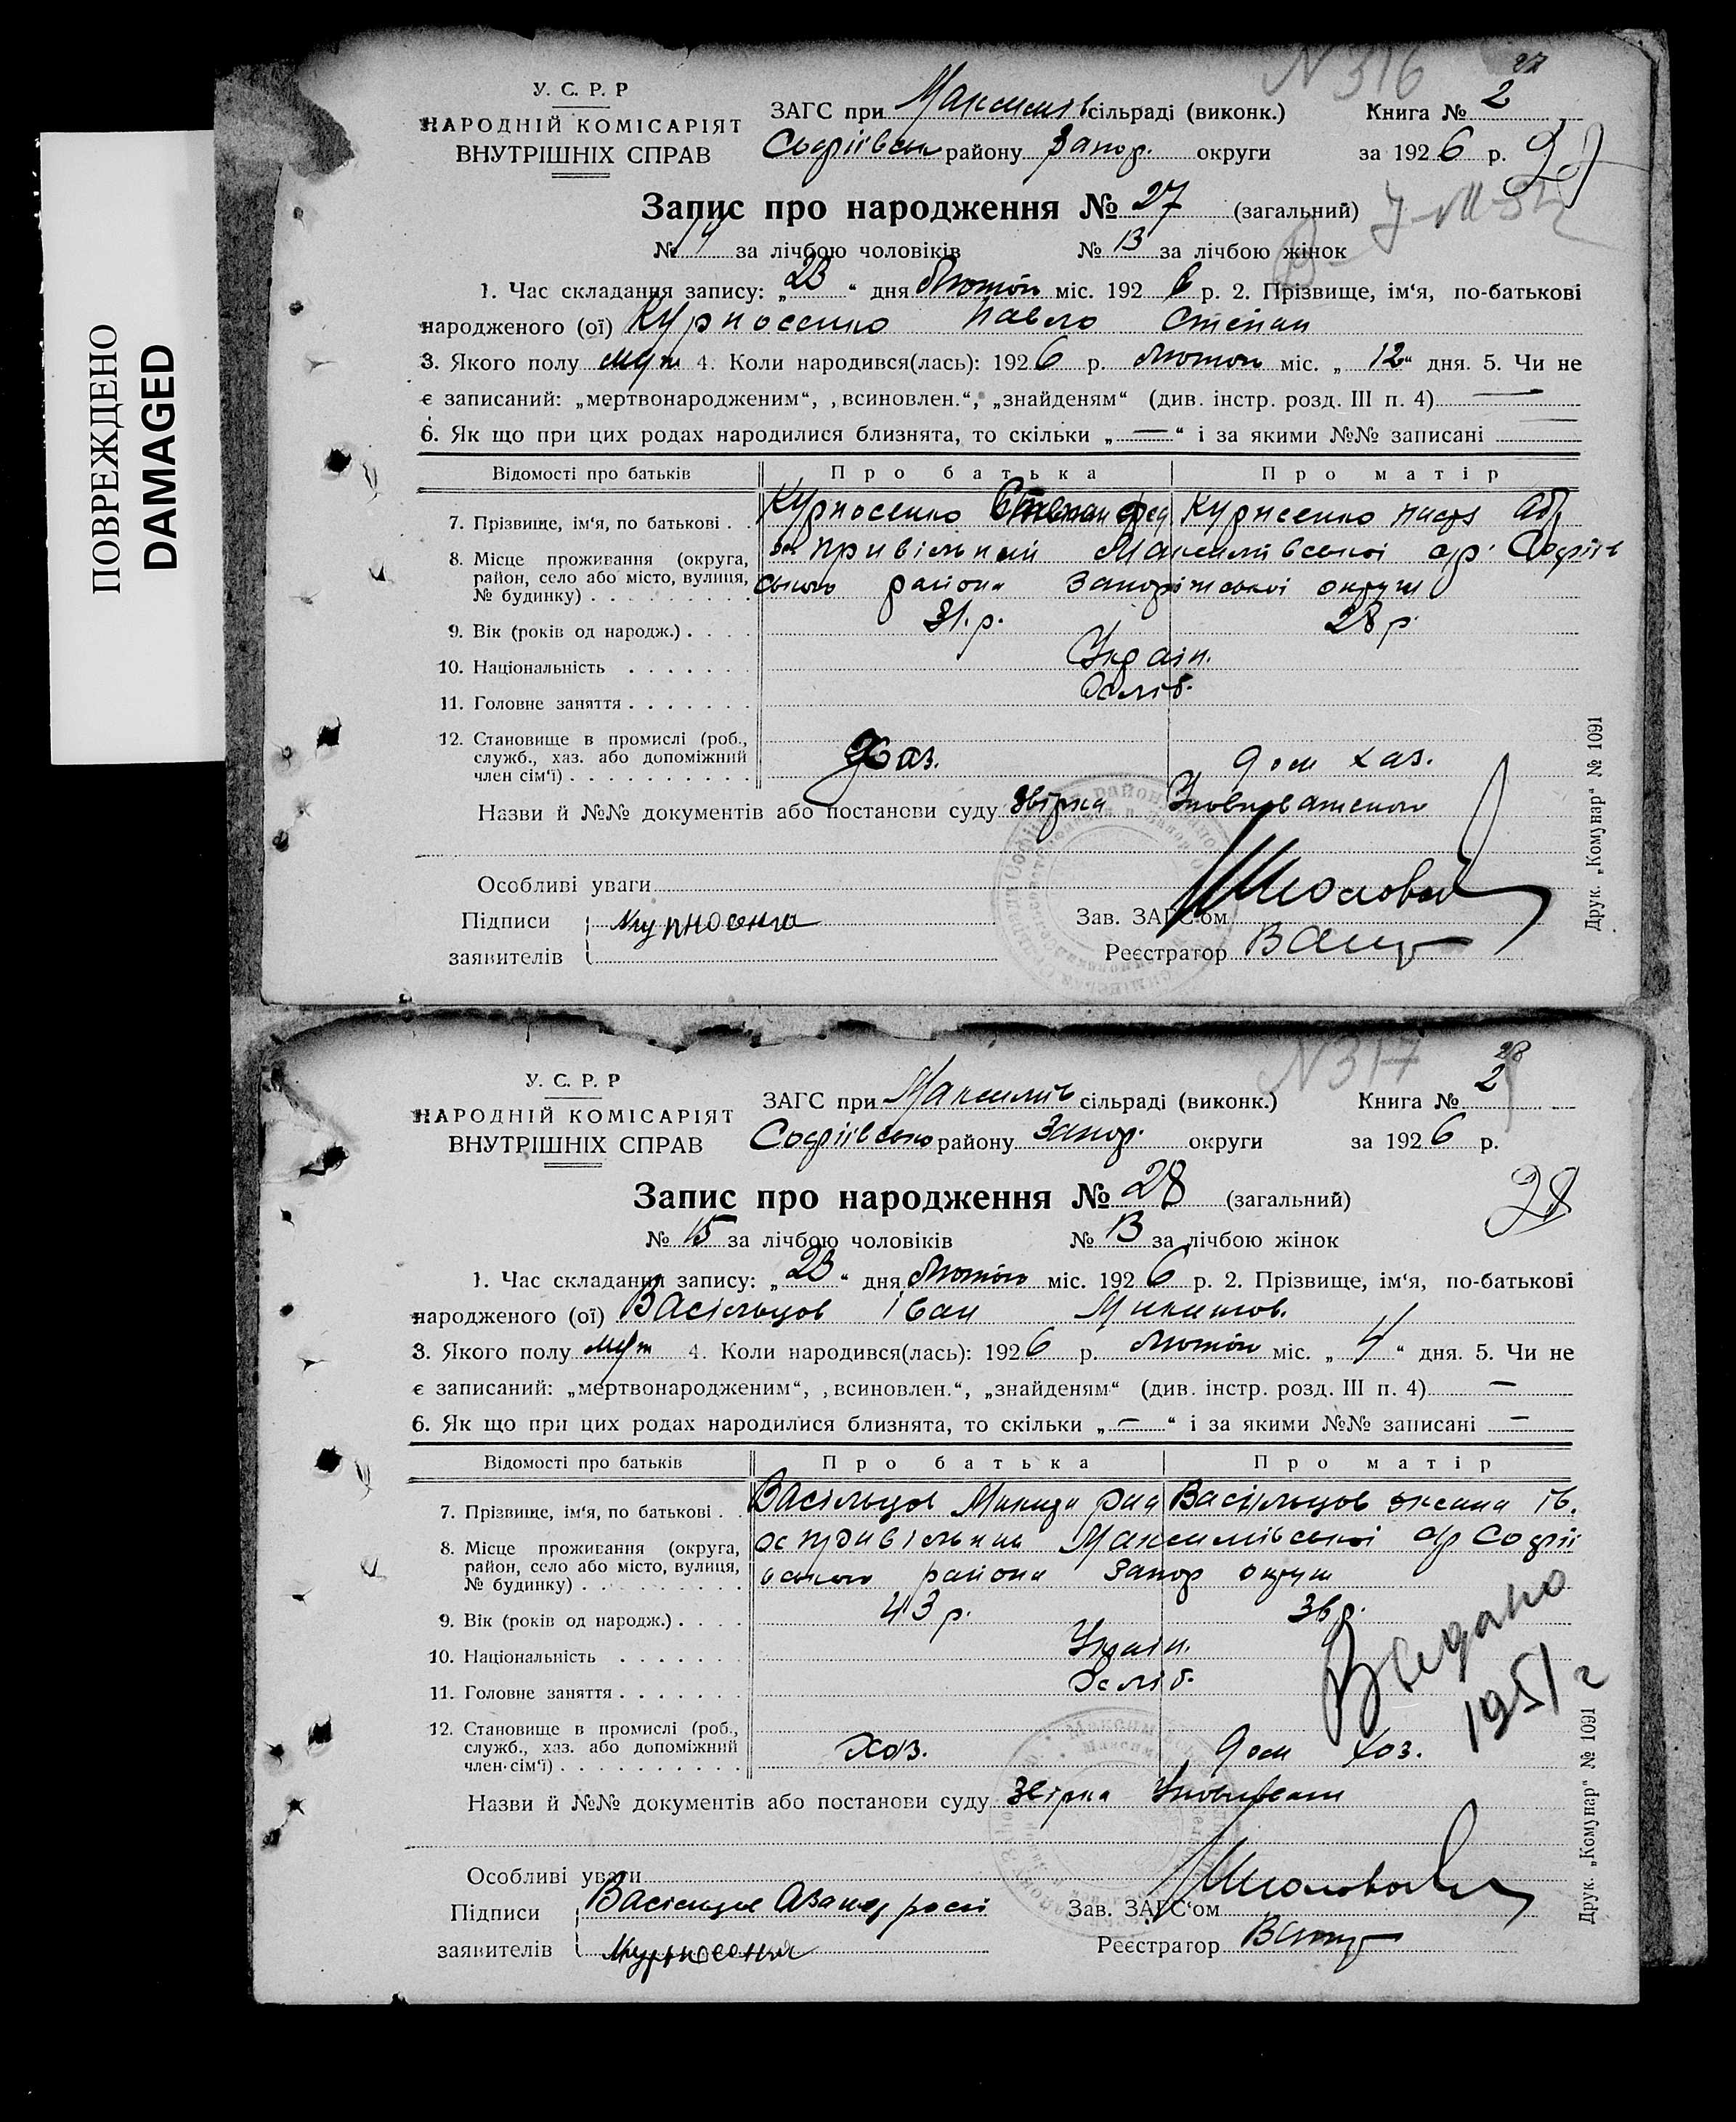 ПОВРЕЖДЕНО
DAMAGED
N 316
27
У. С. Р. Р
НАРОДНІЙ КОМІСАРІЯТ
ВНУТРІШНІХ СПРАВ
ЗАГС при Максимів сільраді (виконк.) Книга № 2
Софіївськ району Запор. округи за 1926 р.
27
Запис про народження № 27 (загальний)
№ 14 за лічбою чоловіків № 13 за лічбою жінок
1. Час складання запису: „23“ дня Лютого міс. 1926 р. 2. Прізвище, ім‘я, по-батькові
народженого (ої) Курносенко Павло Степан
3. Якого полу муж 4. Коли народився(лась): 1926 р. Лютого міс. „12“ дня. 5. Чи не
є записаний: „мертвонародженим“, „всиновлен.“, „знайденям“ (див. інстр. розд. III п. 4) —
6. Як що при цих родах народилися близнята, то скільки „—“ і за якими №№ записані
Відомості про батьків Про батька Про матір
7. Прізвище, ім‘я, по батькові . . Курносенко Степан Фед Курнсенко
8. Місце проживання (округа, район, село або місто, вулиця, № будинку) . . . Привільний Максимівської с/р. Софіїв
ського района Запоріжської округи
9. Вік (років од народж.) . . . . 31. р. 28 р.
10. Національність . . . . . . . Україн.
11. Головне заняття . . . . . . . Хліб.
12. Становище в промислі (роб., служб., хаз. або допоміжний член сім‘ї) . . . Хаз. дом хаз.
Назви й №№ документів або постанови суду Звірка
Особливі уваги
Підписи Курносенко Зав. ЗАГС‘ом
заявителів Реєстратор
Друк. „Комунар“ № 1091
N 317
28
У. С. Р. Р
НАРОДНІЙ КОМІСАРІЯТ
ВНУТРІШНІХ СПРАВ
ЗАГС при Максимів сільраді (виконк.) Книга № 2
Софіївсько району Запор. округи за 1926 р.
28
Запис про народження № 28 (загальний)
№ 15 за лічбою чоловіків № 13 за лічбою жінок
1. Час складання запису: „23“ дня Лютого міс. 1926 р. 2. Прізвище, ім‘я, по-батькові
народженого (ої) Васільцов Іван Микитов.
3. Якого полу муж 4. Коли народився(лась): 1926 р. Лютого міс. „4“ дня. 5. Чи не
є записаний: „мертвонародженим“, „всиновлен.“, „знайденям“ (див. інстр. розд. III п. 4) —
6. Як що при цих родах народилися близнята, то скільки „—“ і за якими №№ записані —
Відомості про батьків Про батька Про матір
7. Прізвище, ім‘я, по батькові . . Васільцов Микита Васільцов Оксана Ів.
8. Місце проживання (округа, район, село або місто, вулиця, № будинку) . . . Привільний Максимівської с/р Софії
вського района Запор округи
9. Вік (років од народж.) . . . . 43 р. 36 р.
10. Національність . . . . . . . Україн.
11. Головне заняття . . . . . . . Хліб.
12. Становище в промислі (роб., служб., хаз. або допоміжний член сім‘ї) . . . Хоз. дом хоз.
Выдано
1951 г
Назви й №№ документів або постанови суду Звірка
Особливі уваги
Підписи Зав. ЗАГС‘ом
заявителів Реєстратор
Друк. „Комунар“ № 1091